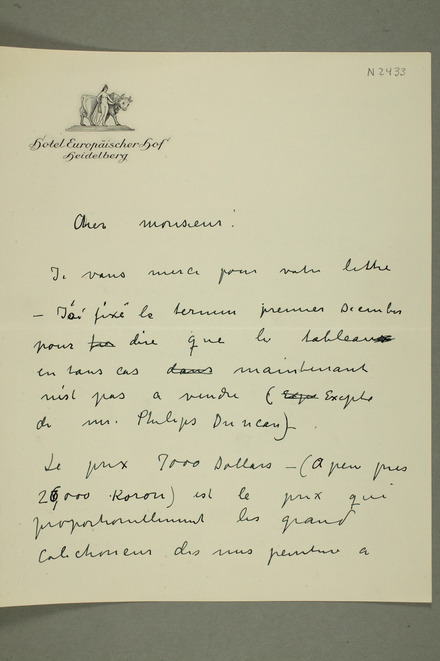 N 2433
Hotel Europäischer Hof
Heidelberg
Cher monsieur!
Je vous merci pour votre lettre
– J'ai fixé le termin premier December
pour dire que le tableau
en tous cas dans maintenant
n'est pas a vendre ( Excepte
de mr. Philips Duncan) –
Le prix 7000 Dollars – (A peu pres
26000 Koron) est le prix qui
proportionellement les grand
des mes peinture a